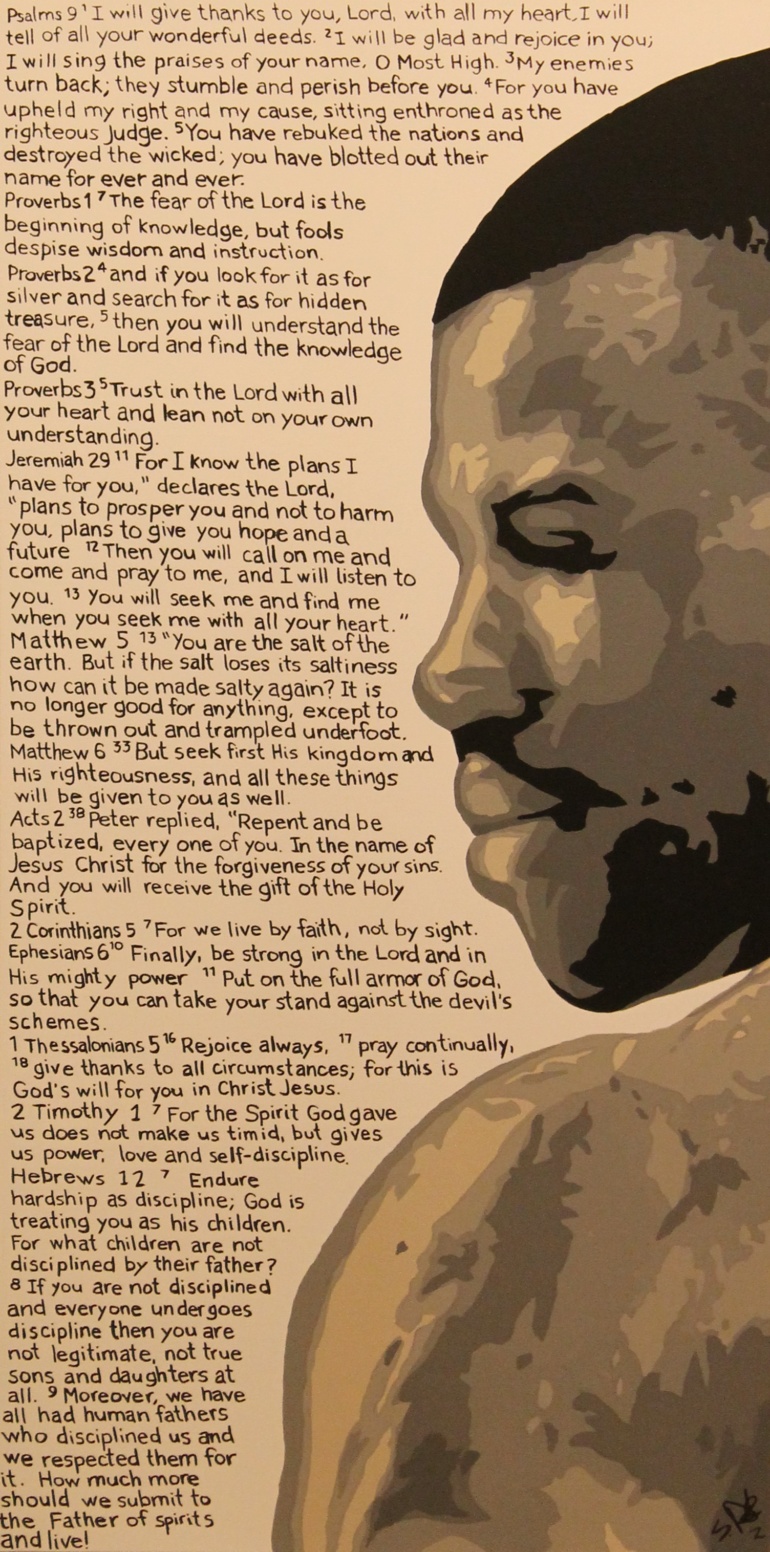 Psalms 9 ¹ I will give thanks to you, Lord, with all my heart, I will
tell of all your wonderful deeds. ² I will be glad and rejoice in you;
I will sing the praises of your name, O Most High. ³ My enemies
turn back; they stumble and perish before you. ⁴ For you have
upheld my right and my cause, sitting enthroned as the
righteous Judge. ⁵ You have rebuked the nations and
destroyed the wicked; you have blotted out their
name for ever and ever.
Proverbs 1 ⁷ The fear of the Lord is the
beginning of knowledge, but fools
despise wisdom and instruction.
Proverbs 2 ⁴ and if you look for it as for
silver and search for it as for hidden
treasure, ⁵ then you will understand the
fear of the Lord and find the knowledge
of God.
Proverbs 3 ⁵ Trust in the Lord with all
your heart and lean not on your own
understanding.
Jeremiah 29 ¹¹ For I know the plans I
have for you," declares the Lord,
"plans to prosper you and not to harm
you, plans to give you hope and a
future ¹² Then you will call on me and
come and pray to me, and I will listen to
you. ¹³ You will seek me and find me
when you seek me with all your heart."
Matthew 5 ¹³ "You are the salt of the
earth. But if the salt loses its saltiness
how can it be made salty again? It is
no longer good for anything, except to
be thrown out and trampled underfoot.
Matthew 6 ³³ But seek first His kingdom and
His righteousness, and all these things
will be given to you as well.
Acts 2 ³⁸ Peter replied, "Repent and be
baptized, every one of you. In the name of
Jesus Christ for the forgiveness of your sins.
And you will receive the gift of the Holy
Spirit.
2 Corinthians 5 ⁷ For we live by faith, not by sight.
Ephesians 6 ¹⁰ Finally, be strong in the Lord and in
His mighty power ¹¹ Put on the full armor of God,
so that you can take your stand against the devil's
schemes.
1 Thessalonians 5 ¹⁶ Rejoice always, ¹⁷ pray continually,
¹⁸ give thanks to all circumstances; for this is
God's will for you in Christ Jesus.
2 Timothy 1 ⁷ For the Spirit God gave
us does not make us timid, but gives
us power, love and self-discipline.
Hebrews 12 ⁷ Endure
hardship as discipline; God is
treating you as his children.
For what children are not
disciplined by their father?
⁸ If you are not disciplined
and everyone undergoes
discipline then you are
not legitimate, not true
sons and daughters at
all. ⁹ Moreover, we have
all had human fathers
who disciplined us and
we respected them for
it. How much more
should we submit to
the Father of spirits
and live!